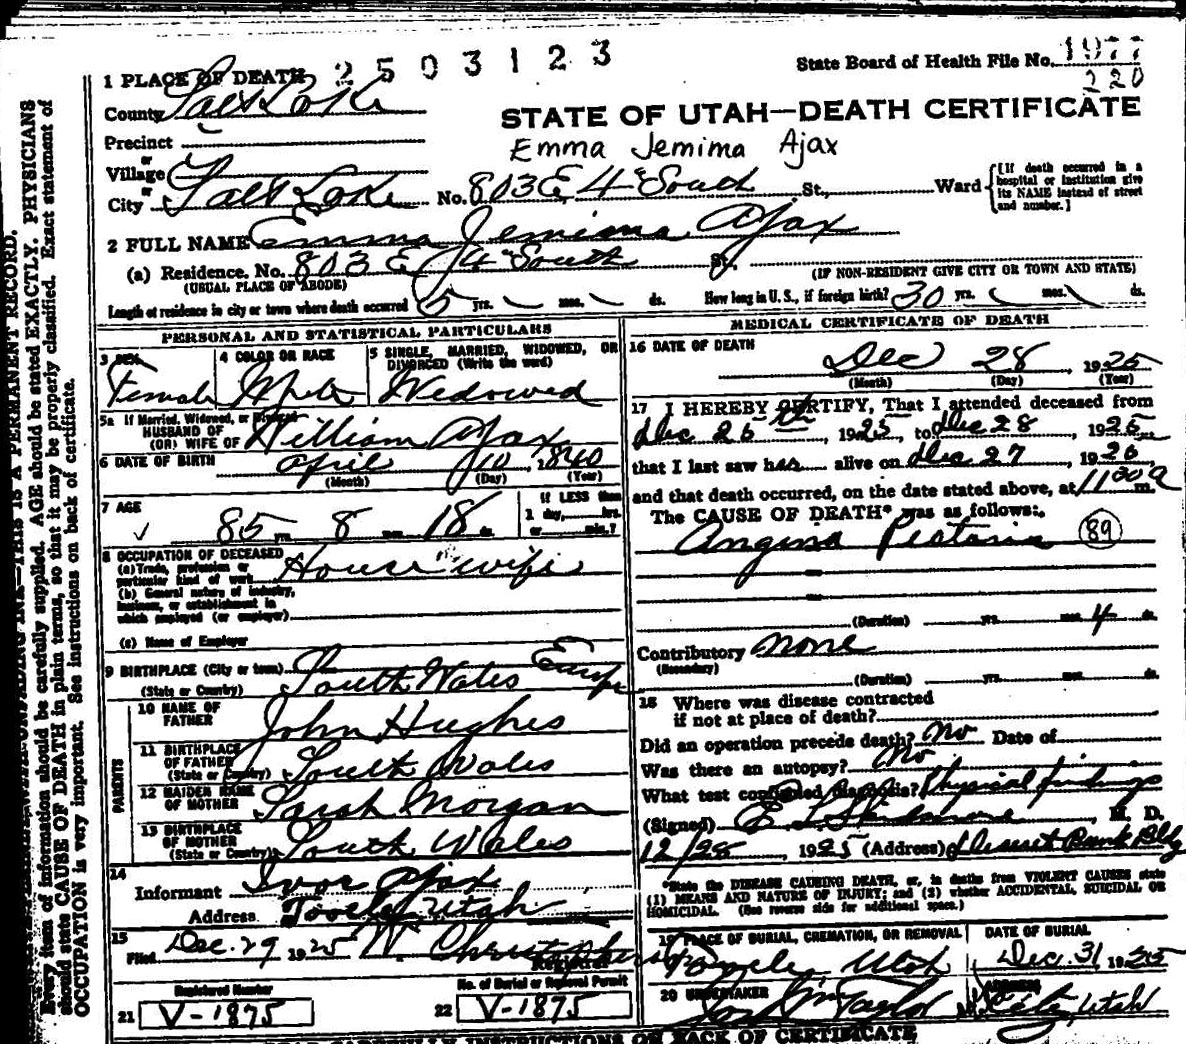 2503123
State Board of Health File No. 1977
220
1 PLACE OF DEATH
County Salt Lake
STATE OF UTAH—DEATH CERTIFICATE
Precinct
Emma Jemima Ajax
or
Village
or
City Salt Lake No. 803 E 4th South St., Ward
[If death occurred in a hospital or institution give its NAME instead of street and number.]
2 FULL NAME Emma Jemima Ajax
(a) Residence. No. 803 E 4th South St.
(USUAL PLACE OF ABODE)
(IF NON-RESIDENT GIVE CITY OR TOWN AND STATE)
Length of residence in city or town where death occurred 5 yrs. mos. ds. How long in U. S., if foreign birth? 30 yrs. mos. ds.
PERSONAL AND STATISTICAL PARTICULARS
3 SEX
Female
4 COLOR OR RACE
White
5 SINGLE, MARRIED, WIDOWED, OR
DIVORCED (Write the word)
Widowed
5a If Married, Widowed, or Divorced
HUSBAND OF
(OR) WIFE OF William Ajax
6 DATE OF BIRTH April 10, 1840
(Month) (Day) (Year)
7 AGE
85 yrs. 8 mos. 18 ds.
If LESS than
1 day, hrs.
or min.?
8 OCCUPATION OF DECEASED
(a) Trade, profession or
particular kind of work House wife
(b) General nature of industry,
business, or establishment in
which employed (or employer)
(c) Name of Employer
9 BIRTHPLACE (City or town) South Wales Europe
(State or Country)
PARENTS
10 NAME OF
FATHER John Hughes
11 BIRTHPLACE
OF FATHER
(State or Country) South Wales
12 MAIDEN NAME
OF MOTHER Sarah Morgan
13 BIRTHPLACE
OF MOTHER
(State or Country) South Wales
14
Informant Ivor Ajax
Address Tooele, Utah
15
Filed Dec. 29 1925
Registrar
Registered Number
21 V-1875
No. of Burial or Removal Permit
22 V-1875
MEDICAL CERTIFICATE OF DEATH
16 DATE OF DEATH
Dec 28, 1925
(Month) (Day) (Year)
17 I HEREBY CERTIFY, That I attended deceased from
Dec 25th, 1925, to Dec 28, 1925
that I last saw her alive on Dec 27, 1925
and that death occurred, on the date stated above, at 11 30 a m.
The CAUSE OF DEATH* was as follows:
Angina Pectoris 89
(Duration) yrs. mos. 4 ds.
Contributory None
(Secondary)
(Duration) yrs. mos. ds.
18 Where was disease contracted
if not at place of death?
Did an operation precede death? No Date of
Was there an autopsy? No
What test confirmed diagnosis? Physical findings
(Signed) E L Skidmore, M. D.
12/28, 1925 (Address) Deseret Bank Bldg
*State the DISEASE CAUSING DEATH, or, in deaths from VIOLENT CAUSES state
(1) MEANS AND NATURE OF INJURY; and (2) whether ACCIDENTAL, SUICIDAL OR
HOMICIDAL. (See reverse side for additional space.)
19 PLACE OF BURIAL, CREMATION, OR REMOVAL
Tooele, Utah
DATE OF BURIAL
Dec. 31, 1925
20 UNDERTAKER
Taylor
ADDRESS
City, Utah
CAREFULLY INSTRUCTIONS ON BACK OF CERTIFICATE
THIS IS A PERMANENT RECORD.
Every item of information should be carefully supplied. AGE should be stated EXACTLY. PHYSICIANS
should state CAUSE OF DEATH in plain terms, so that it may be properly classified. Exact statement of
OCCUPATION is very important. See instructions on back of certificate.